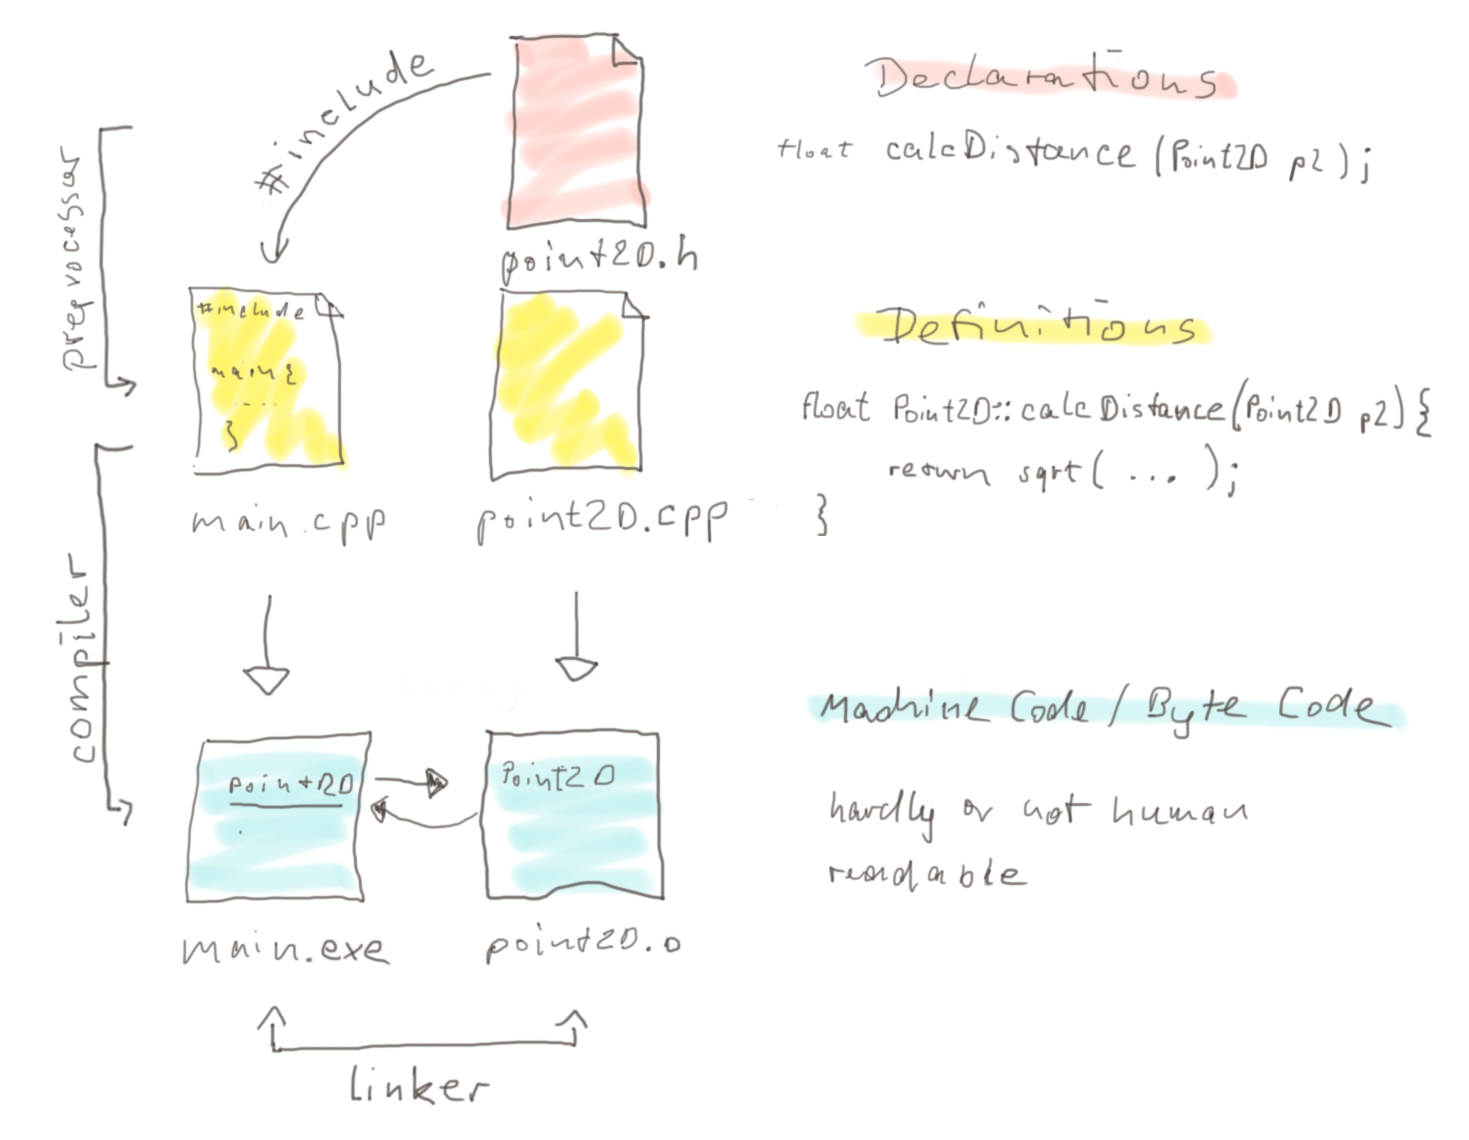 #include
Declarations
float calcDistance (Point2D p2);
preprocessor
point2D.h
#include
main{
....
}
Definitions
float Point2D::calcDistance(Point2D p2){
return sqrt( ... );
}
main.cpp
point2D.cpp
compiler
Machine Code / Byte Code
Point2D
Point2D
hardly or not human
readable
main.exe
point2D.o
linker